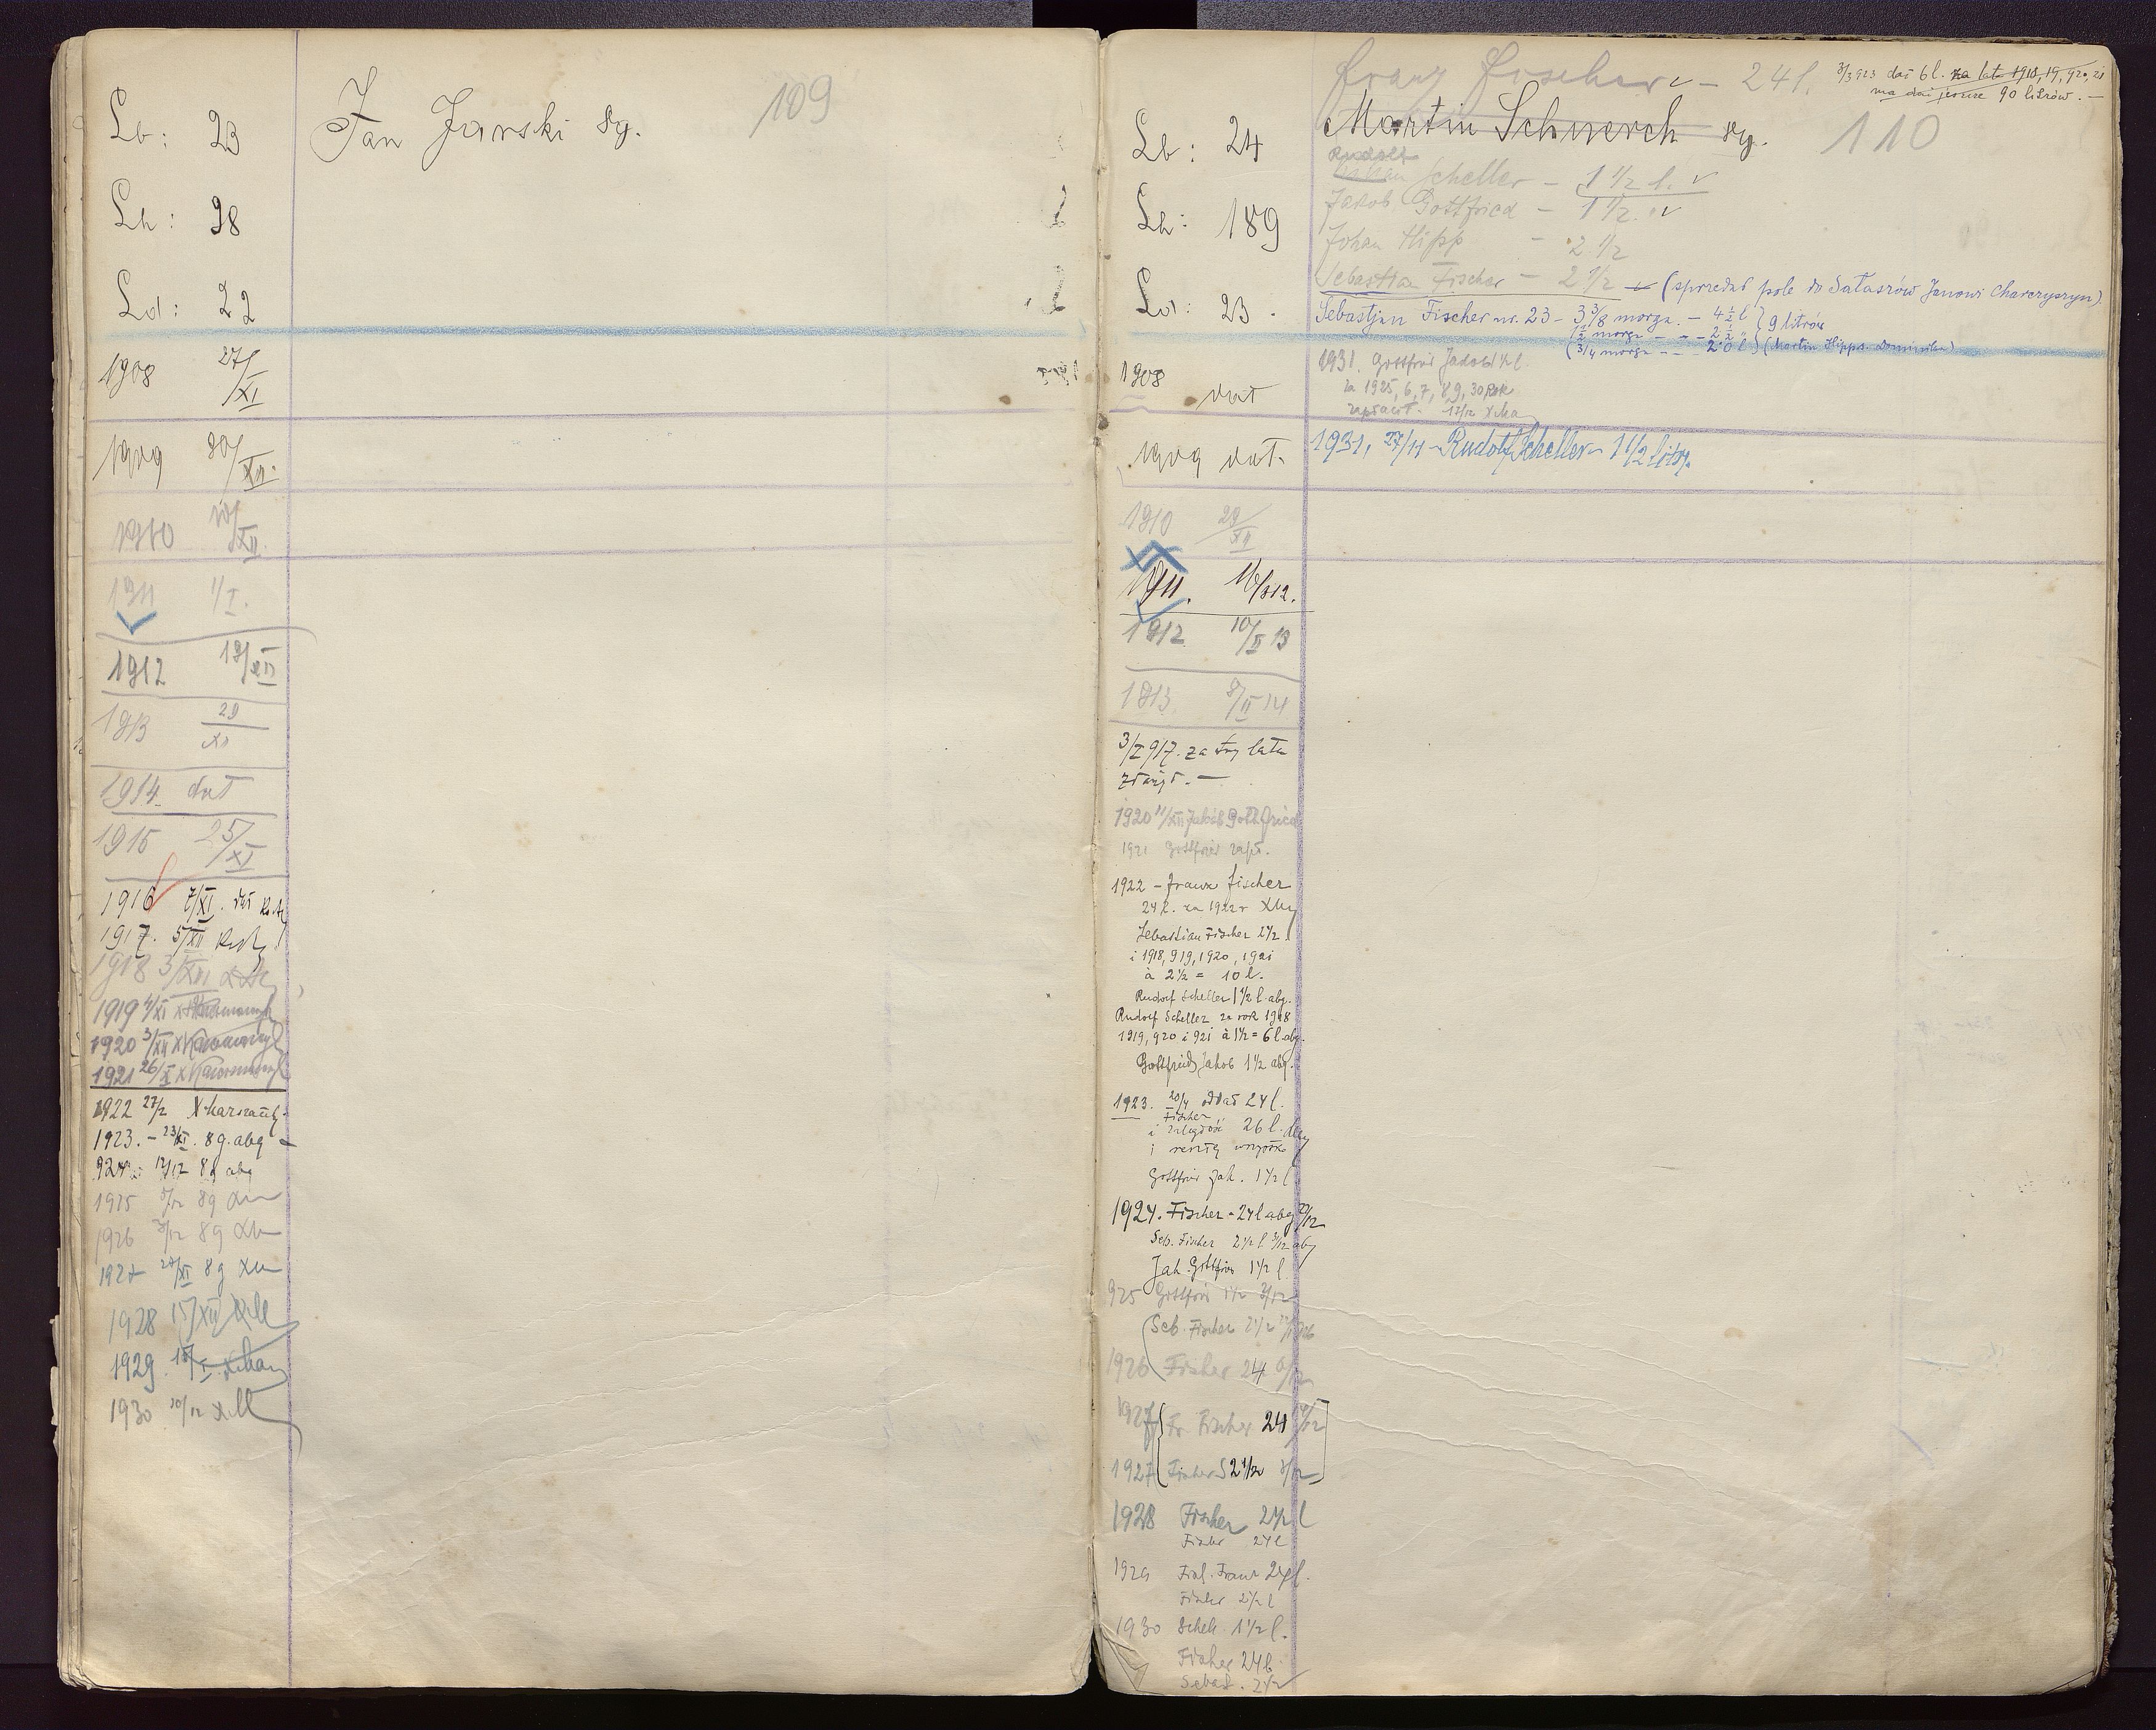 Lb: 23 Jan Jarski 8g. 109
Lh: 98
Ld: 22
1908 27/XI
1909 30/XII.
1910 10/XII.
1911 1/I.
1912 19/XII
1913 29/XI
1914. dał
1915 25/XI
1916 7/XI.
1917. 5/XII
1918 3/XII
1919 4/XI
1920 3/XII
1921 26/X
1922 27/2
1923. - 23/XI. 8g. abg -
924 12/12 8g abg
1925 8g
1926 8g
1927 8g
1928 15/XII
1929 15/I
1930 10/12
Franz Fischer - 24 l. 3/3 923 dał 6 l. za lata 1918, 19, 920, 21
ma dać jeszcze 90 litrów. -
Lb: 24 Martin Schnerch 8g. 110
Rudolf
Scheller - 1 1/2 l.
Lh: 189 Jakob Gottfried - 1 1/2.
Johan Hipp - 2 1/2
Sebastian Fischer - 2 1/2 (sprzedał pole do Sałaszów Janowi Charczyszyn)
Ld: 23. Sebastjan Fischer nr. 23 - 3 3/8 morga. - 4 1/2 l } 9 litrów
1/2 morga - - - 2 1/2 "
(3/4 morga - - 2 0 l (Martin Hippa Dominika)
1908 dał
1931. Gottfried Jakob 1 1/2 l.
za 1925, 6, 7, 8, 9, 30 Rok
zapłacił. 12/12
1909 dał. 1931, 27/11 - Rudolf Scheller - 1 1/2 litry.
1910 29/XII
1911. 16/3 12.
1912 10/II 13
1913. 8/II 14
3/I 917. za trzy lata
złożył. -
1920 11/XII Jakób Gottfried
1921 Gottfried zapł.
1922 - Franz Fischer
24 l. za 1922 r
Sebastian Fischer 2 1/2
i 1918, 919, 1920, 1921
à 2 1/2 = 10 l.
Rudolf Scheller 1 1/2 l. abg.
Rudolf Scheller za rok 1918
1919, 920 i 921 à 1 1/2 = 6 l. abg.
Gottfried Jakob 1 1/2 abg.
1923. 20/4 oddał 24 l.
Fischer
i zaległość 26 l. abg
i resztę wszystko
Gottfried Jak. 1 1/2 l
1924. Fischer - 24 l abg 27/12
Seb. Fischer 2 1/2 l abg
Jak. Gottfried 1 1/2 l.
925 Gottfried 1 1/2
Seb. Fischer 2 1/2
1926 Fischer 24
1927 Fr. Fischer 24
1927 Fischer S 2 1/2
1928 Fischer 2 1/2 l
Fischer 24 l
1929 Fisch. Franz 24 l.
Fischer 2 1/2 l
1930 Schell. 1 1/2 l.
Fischer 24 l.
Sebast. 2 1/2